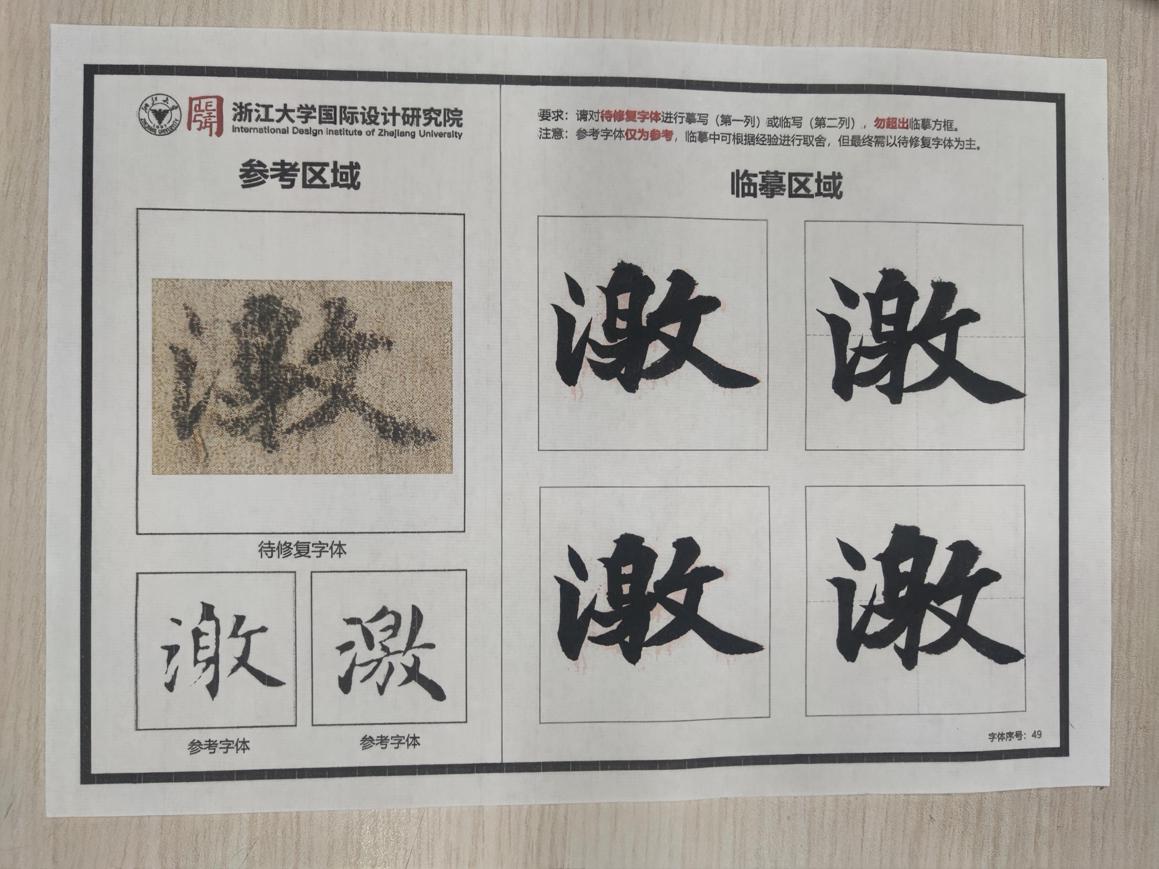 浙江大学国际设计研究院
International Design Institute of Zhejiang University
参考区域
激
待修复字体
激
激
参考字体
参考字体
要求：请对待修复字体进行摹写（第一列）或临写（第二列），勿超出临摹方框。
注意：参考字体仅为参考，临摹中可根据经验进行取舍，但最终需以待修复字体为主。
临摹区域
激
激
激
激
字体序号：49